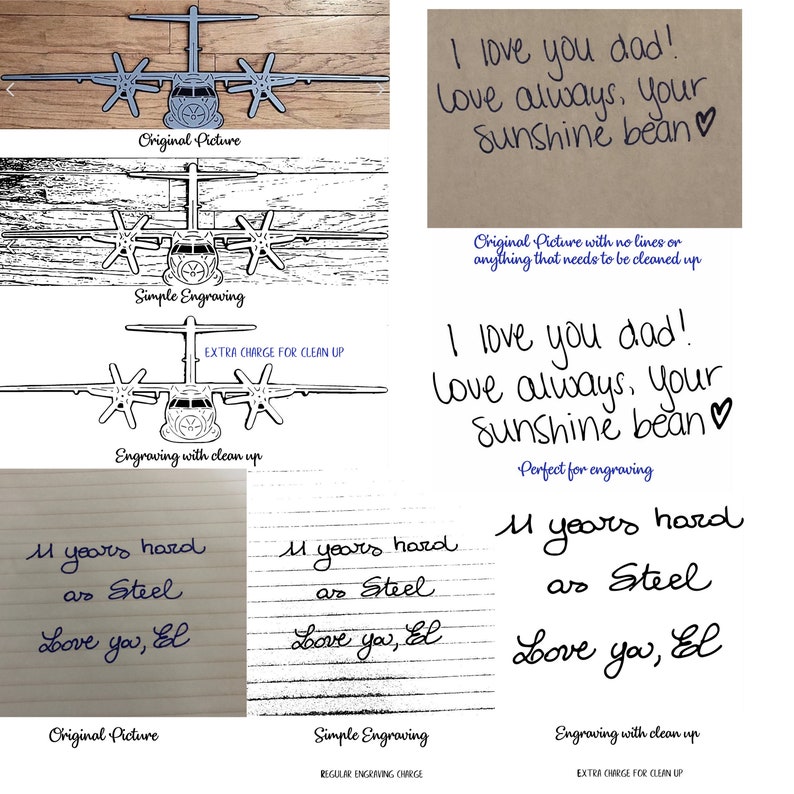 Original Picture
Simple Engraving
EXTRA CHARGE FOR CLEAN UP
Engraving with clean up
I love you dad!
Love always, your
sunshine bean
Original Picture with no lines or
anything that needs to be cleaned up
I love you dad!
Love always, your
sunshine bean
Perfect for engraving
11 years hard
as Steel
Love ya, El
Original Picture
11 years hard
as Steel
Love ya, El
Simple Engraving
REGULAR ENGRAVING CHARGE
11 years hard
as Steel
Love ya, El
Engraving with clean up
EXTRA CHARGE FOR CLEAN UP